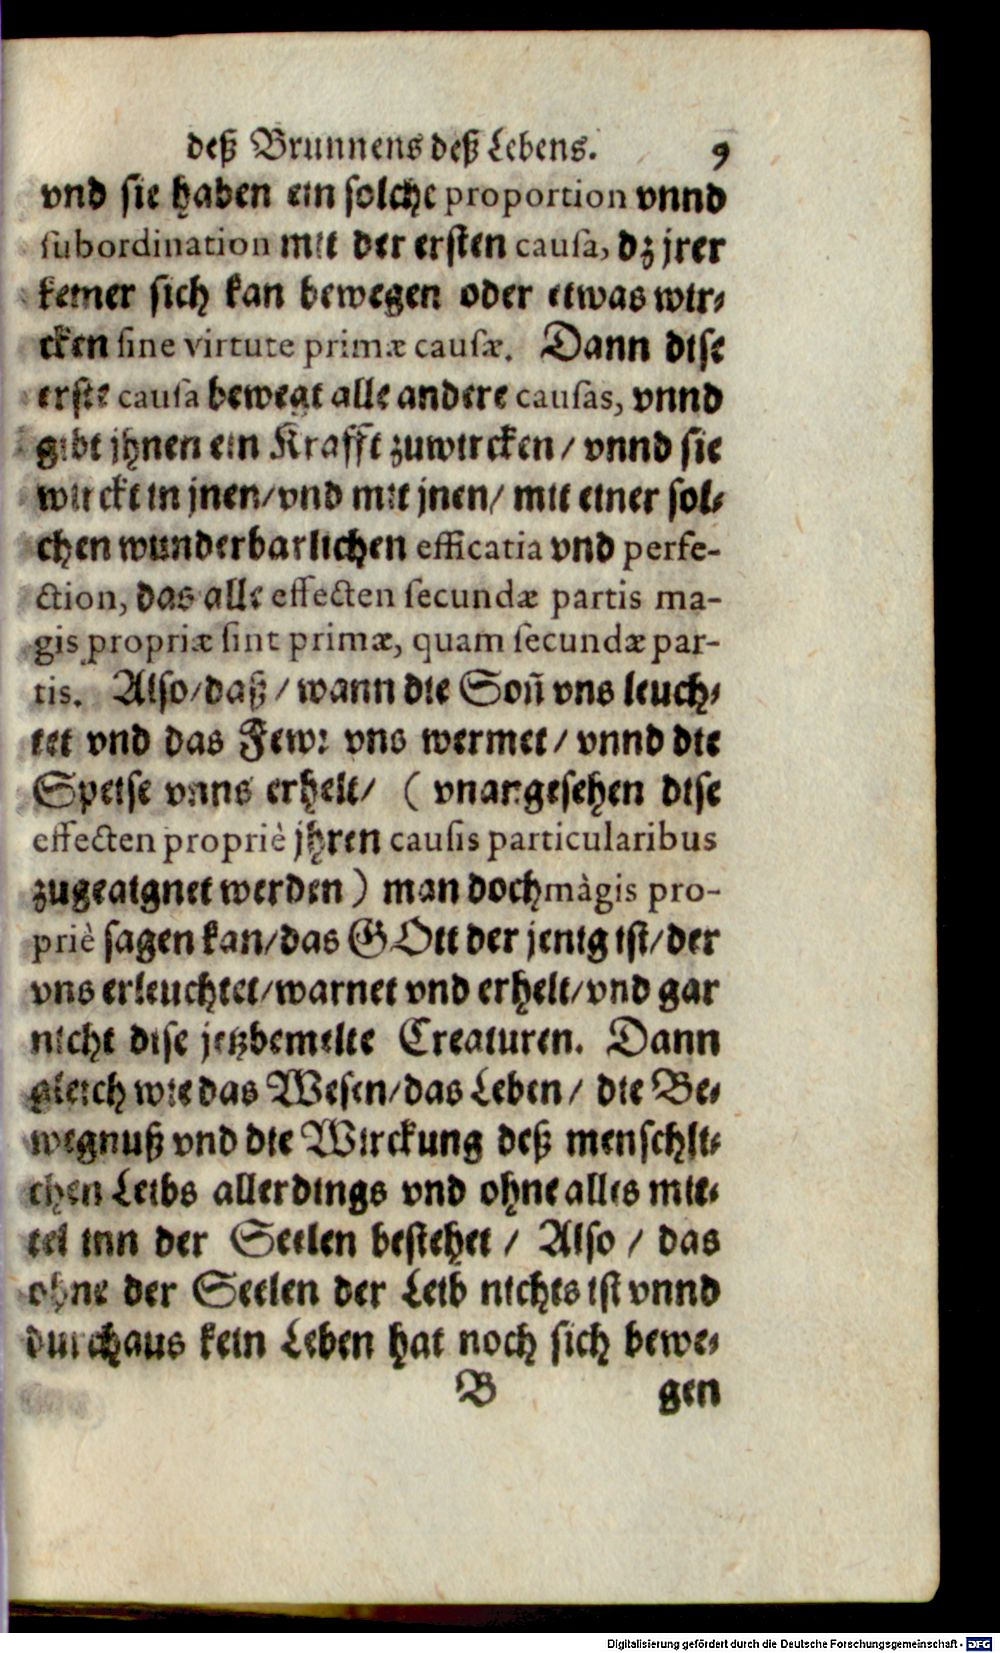 deß Brunnens deß Lebens. 9
vnd sie haben ein solche proportion vnnd
subordination mit der ersten causa, dz jrer
keiner sich kan bewegen oder etwas wir-
cken sine virtute primæ causæ. Dann dise
erste causa bewegt alle andere causas, vnnd
gibt jhnen ein Krafft zuwircken / vnnd sie
wirckt in jnen/vnd mit jnen/ mit einer sol-
chen wunderbarlichen efficatia vnd perfe-
ction, das alle effecten secundæ partis ma-
gis propriæ sint primæ, quam secundæ par-
tis. Also/daß / wann die Soñ vns leuch-
tet vnd das Fewr vns wermet / vnnd die
Speise vnns erhelt/ ( vnangesehen dise
effecten propriè jhren causis particularibus
zugeaignet werden ) man doch màgis pro-
priè sagen kan/das GOtt der jenig ist/der
vns erleuchtet/warnet vnd erhelt/vnd gar
nicht dise jetzbemelte Creaturen. Dann
gleich wie das Wesen/das Leben / die Be-
wegnuß vnd die Wirckung deß menschli-
chen Leibs allerdings vnd ohne alles mit-
tel inn der Seelen bestehet / Also / das
ohne der Seelen der Leib nichts ist vnnd
durchaus kein Leben hat noch sich bewe-
B gen
Digitalisierung gefördert durch die Deutsche Forschungsgemeinschaft - DFG